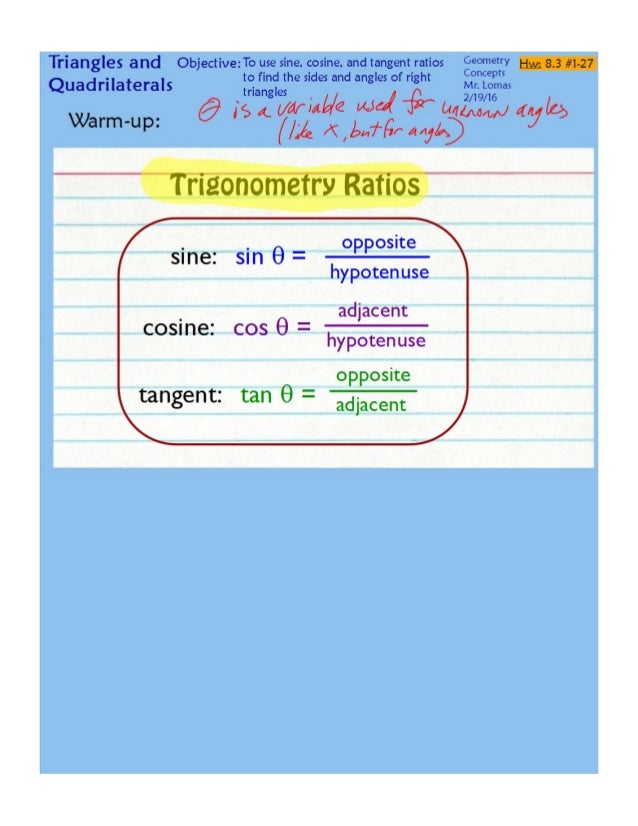 Triangles and
Quadrilaterals
Objective: To use sine, cosine, and tangent ratios
to find the sides and angles of right
triangles
Geometry
Concepts
Mr. Lomas
2/19/16
Hw: 8.3 #1-27
Warm-up:
θ is a variable used for unknown angles
(like x, but for angles)
Trigonometry Ratios
sine: sin θ = opposite
hypotenuse
cosine: cos θ = adjacent
hypotenuse
tangent: tan θ = opposite
adjacent